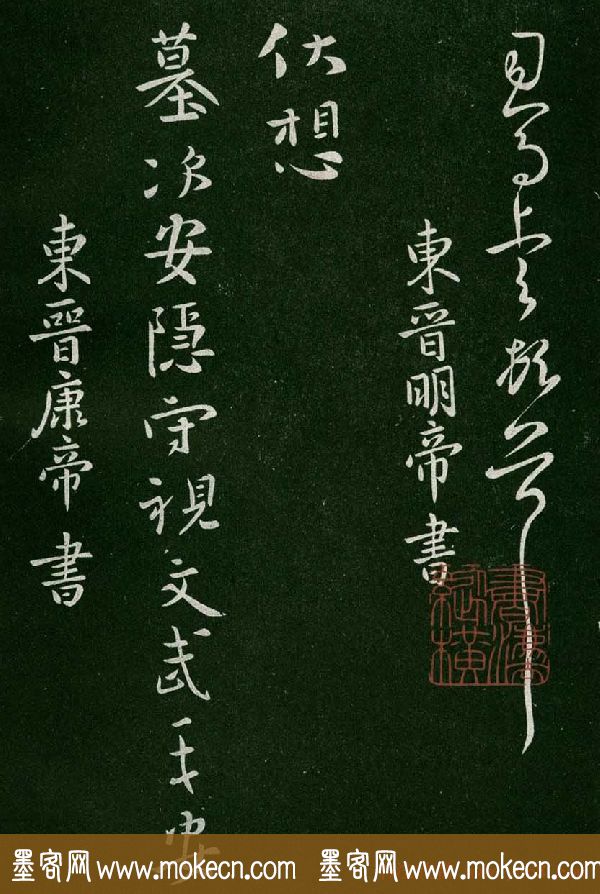 東晉明帝書
伏想
墓次安隱守視文武平安
東晉康帝書
書法縱橫
墨客网 www.mokecn.com 墨客网 www.mokecn.com